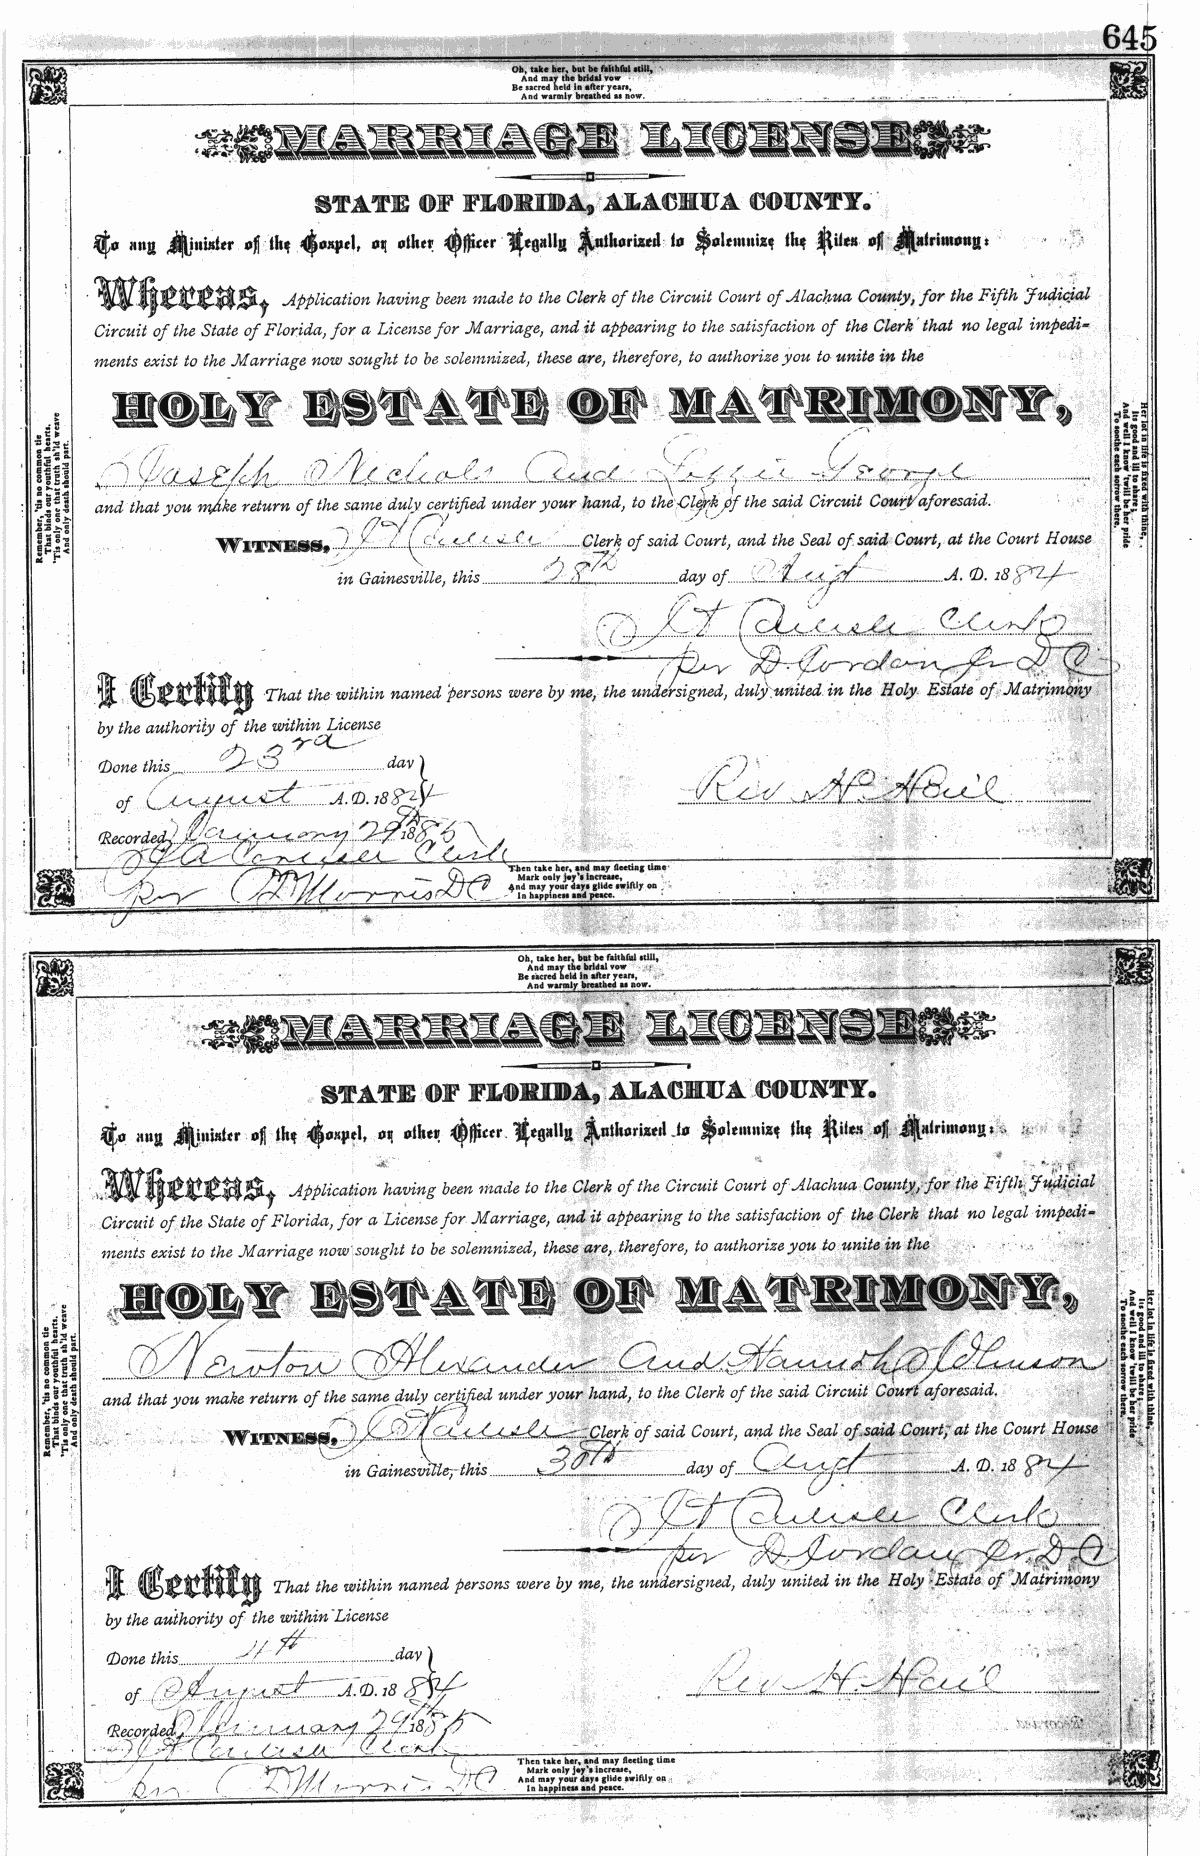 645
Oh, take her, but be faithful still,
And may the bridal vow
Be sacred held in after years,
And warmly breathed as now.
MARRIAGE LICENSE
STATE OF FLORIDA, ALACHUA COUNTY.
To any Minister of the Gospel, or other Officer Legally Authorized to Solemnize the Rites of Matrimony:
Whereas, Application having been made to the Clerk of the Circuit Court of Alachua County, for the Fifth Judicial
Circuit of the State of Florida, for a License for Marriage, and it appearing to the satisfaction of the Clerk that no legal impedi-
ments exist to the Marriage now sought to be solemnized, these are, therefore, to authorize you to unite in the
HOLY ESTATE OF MATRIMONY,
Joseph Nichols and Lizzie George
and that you make return of the same duly certified under your hand, to the Clerk of the said Circuit Court aforesaid.
WITNESS, J A Carlisle Clerk of said Court, and the Seal of said Court, at the Court House
in Gainesville, this 28th day of Augt A. D. 1884
J A Carlisle Clerk
per D. Jordan Jr D C
I Certify That the within named persons were by me, the undersigned, duly united in the Holy Estate of Matrimony
by the authority of the within License
Done this 23rd day
of August A.D. 1884
Rev H. Hail
Recorded January 29th 1885
J A Carlisle Clerk
per Morris DC
Then take her, and may fleeting time
Mark only joy's increase,
And may your days glide swiftly on
In happiness and peace.
Remember, 'tis no common tie
That binds our youthful hearts,
'Tis only one that truth sh'ld weave
And only death should part.
Her lot in life is fixed with thine,
Its good and ill to share;
And well I know 'twill be her pride
To soothe each sorrow there.
Oh, take her, but be faithful still,
And may the bridal vow
Be sacred held in after years,
And warmly breathed as now.
MARRIAGE LICENSE
STATE OF FLORIDA, ALACHUA COUNTY.
To any Minister of the Gospel, or other Officer Legally Authorized to Solemnize the Rites of Matrimony:
Whereas, Application having been made to the Clerk of the Circuit Court of Alachua County, for the Fifth Judicial
Circuit of the State of Florida, for a License for Marriage, and it appearing to the satisfaction of the Clerk that no legal impedi-
ments exist to the Marriage now sought to be solemnized, these are, therefore, to authorize you to unite in the
HOLY ESTATE OF MATRIMONY,
Newton Alexander and Hannah Johnson
and that you make return of the same duly certified under your hand, to the Clerk of the said Circuit Court aforesaid.
WITNESS, J A Carlisle Clerk of said Court, and the Seal of said Court, at the Court House
in Gainesville, this 30th day of Augt A. D. 1884
J A Carlisle Clerk
per D Jordan Jr. D. C
I Certify That the within named persons were by me, the undersigned, duly united in the Holy Estate of Matrimony
by the authority of the within License
Done this 4th day
of August A.D. 1884
Rev H. Hail
Recorded January 29th 1885
J A Carlisle Clerk
per Morris DC
Then take her, and may fleeting time
Mark only joy's increase,
And may your days glide swiftly on
In happiness and peace.
Remember, 'tis no common tie
That binds our youthful hearts,
'Tis only one that truth sh'ld weave
And only death should part.
Her lot in life is fixed with thine,
Its good and ill to share;
And well I know 'twill be her pride
To soothe each sorrow there.